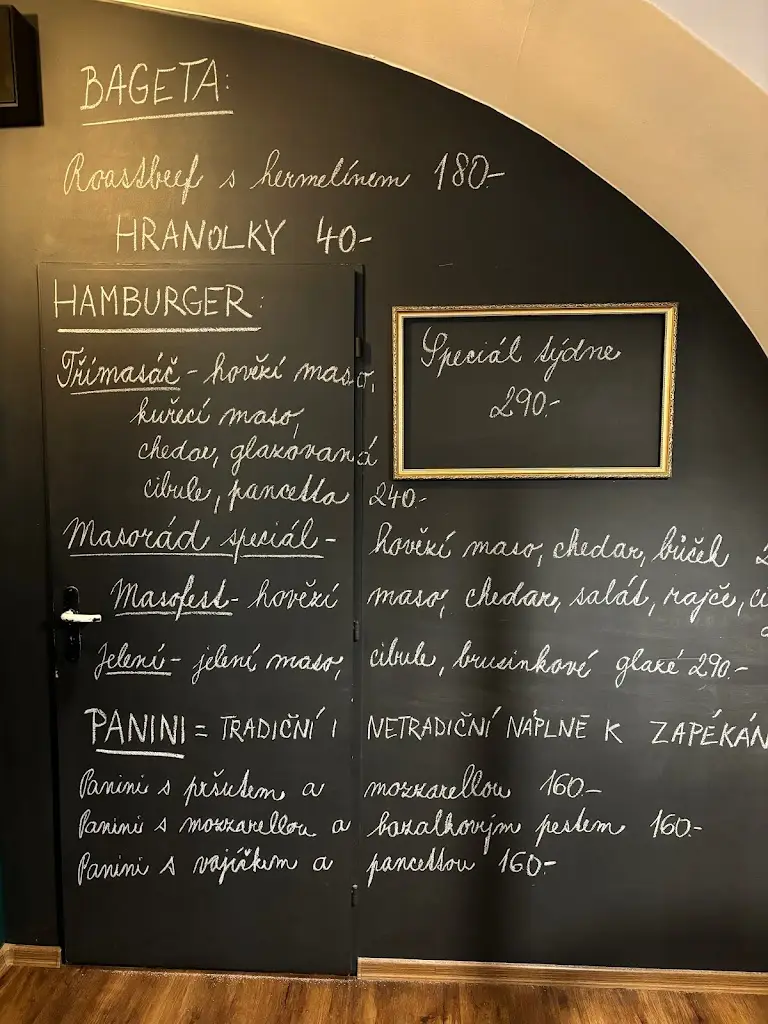 BAGETA:
Roastbeef s hermelínem 180-
HRANOLKY 40-
HAMBURGER:
Třímasáč - hovězí maso,
kuřecí maso,
chedar, glazovaná
cibule, pancetta 240.-
Speciál týdne
290.-
Masorád speciál - hovězí maso, chedar, bůček
Masofest - hovězí maso, chedar, salát, rajče,
Jelení - jelení maso, cibule, brusinkové glazé 290.-
PANINI = TRADIČNÍ I NETRADIČNÍ NÁPLNĚ K ZAPÉKÁN
Panini s pršutem a mozzarellou 160.-
Panini s mozzarellou a bazalkovým pestem 160.-
Panini s vajíčkem a pancettou 160.-